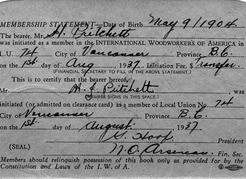 MEMBERSHIP STATEMENT—Date of Birth May 9/1904
The bearer, Mr. H. Pritchett
was initiated as a member in the INTERNATIONAL WOODWORKERS OF AMERICA in
L. U. 74 City of Vancouver Province B.C.
on the 1st day of Aug 1937. Initiation Fee, $ Transfer.
(FINANCIAL SECRETARY TO FILL IN THE ABOVE STATEMENT)
This is to certify that the bearer hereof,
Mr. H. Pritchett
(BEARER SIGNS IN THIS SPACE)
initiated (or admitted on clearance card) as a member of Local Union No. 74
City of Vancouver Province of B.C.
on the 1st. day of August 1937.
Pres.
(SEAL) Fin. Sec.
Members should relinquish possession of this book only as provided for by the
Constitution and Laws of the I. W. of A.